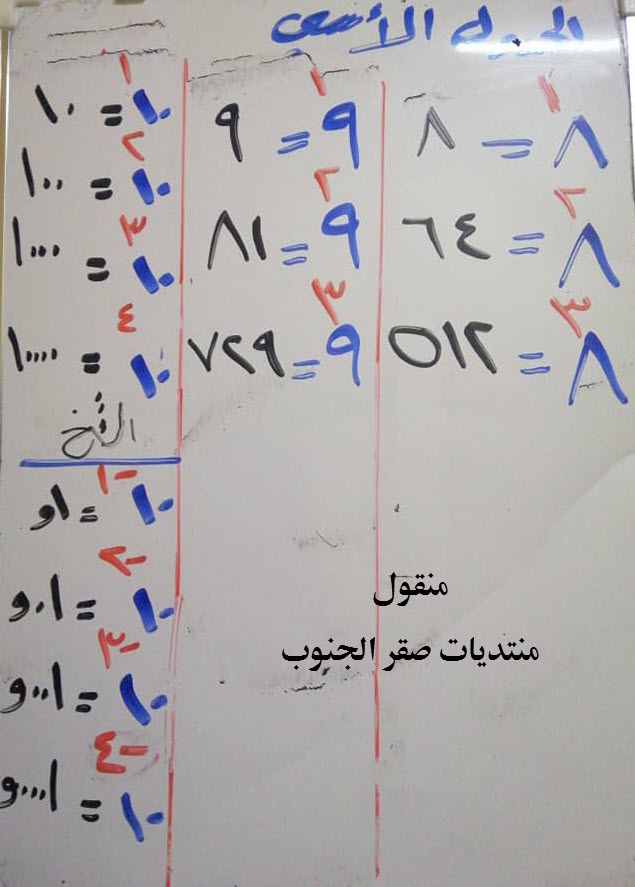 الجدول الأسى
٨^١ = ٨
٨^٢ = ٦٤
٨^٣ = ٥١٢
٩^١ = ٩
٩^٢ = ٨١
٩^٣ = ٧٢٩
١٠^١ = ١٠
١٠^٢ = ١٠٠
١٠^٣ = ١٠٠٠
١٠^٤ = ١٠٠٠٠
١٠^-١ = ١و
١٠^-٢ = ٠١و
١٠^-٣ = ٠٠١و
١٠^-٤ = ٠٠٠١و
منقول
منتديات صقر الجنوب